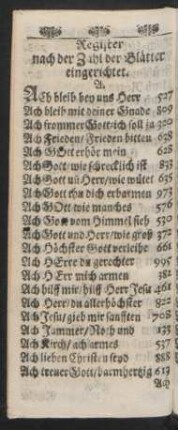 Register
nach der Zahl der Blätter
eingerichtet.
A.
Ach bleib bey uns Herr 527
Ach bleib mit deiner Gnade 809
Ach frommer Gott ich soll ja 320
Ach Frieden/ Frieden bitten 628
Ach GOtt erhör mein 628
Ach Gott/ wie schrecklich ist 833
Ach Gott uñ Herr/wie
Ach Gott thu dich erbarmen 973
Ach GOtt wie manches 576
Ach Gott vom Himmel sieh 530
Ach Gott und Herr/wie groß 372
Ach Höchster Gott verleihe 661
Ach HErre du gerechter 995
Ach HErr mich armen 382
Ach hilff mir/hilff Herr Jesu 461
Ach Herr/du allerhöchster 822
Ach Jesu/gieb mir sanfften 708
Ach Jammer/Noth und 135
Ach Kirch/ach armes 537
Ach lieben Christen seyd 888
Ach treuer Gott/barmhertzig 613
Ach